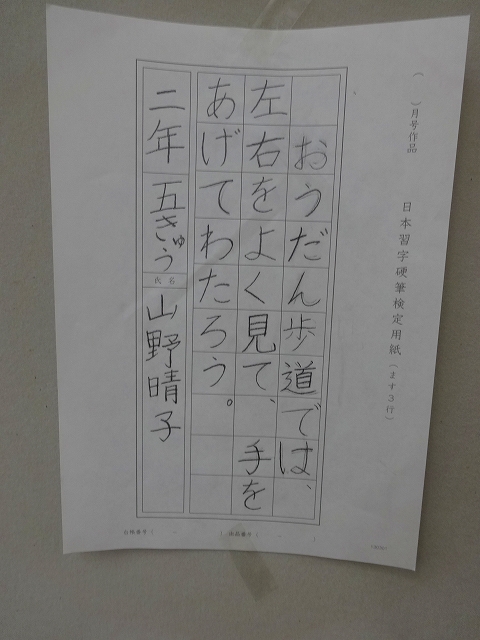 （　　）月号作品
日本習字硬筆検定用紙（ます3行）
おうだん歩道では、
左右をよく見て、手を
あげてわたろう。
二年 五きゅう
氏名
山野晴子